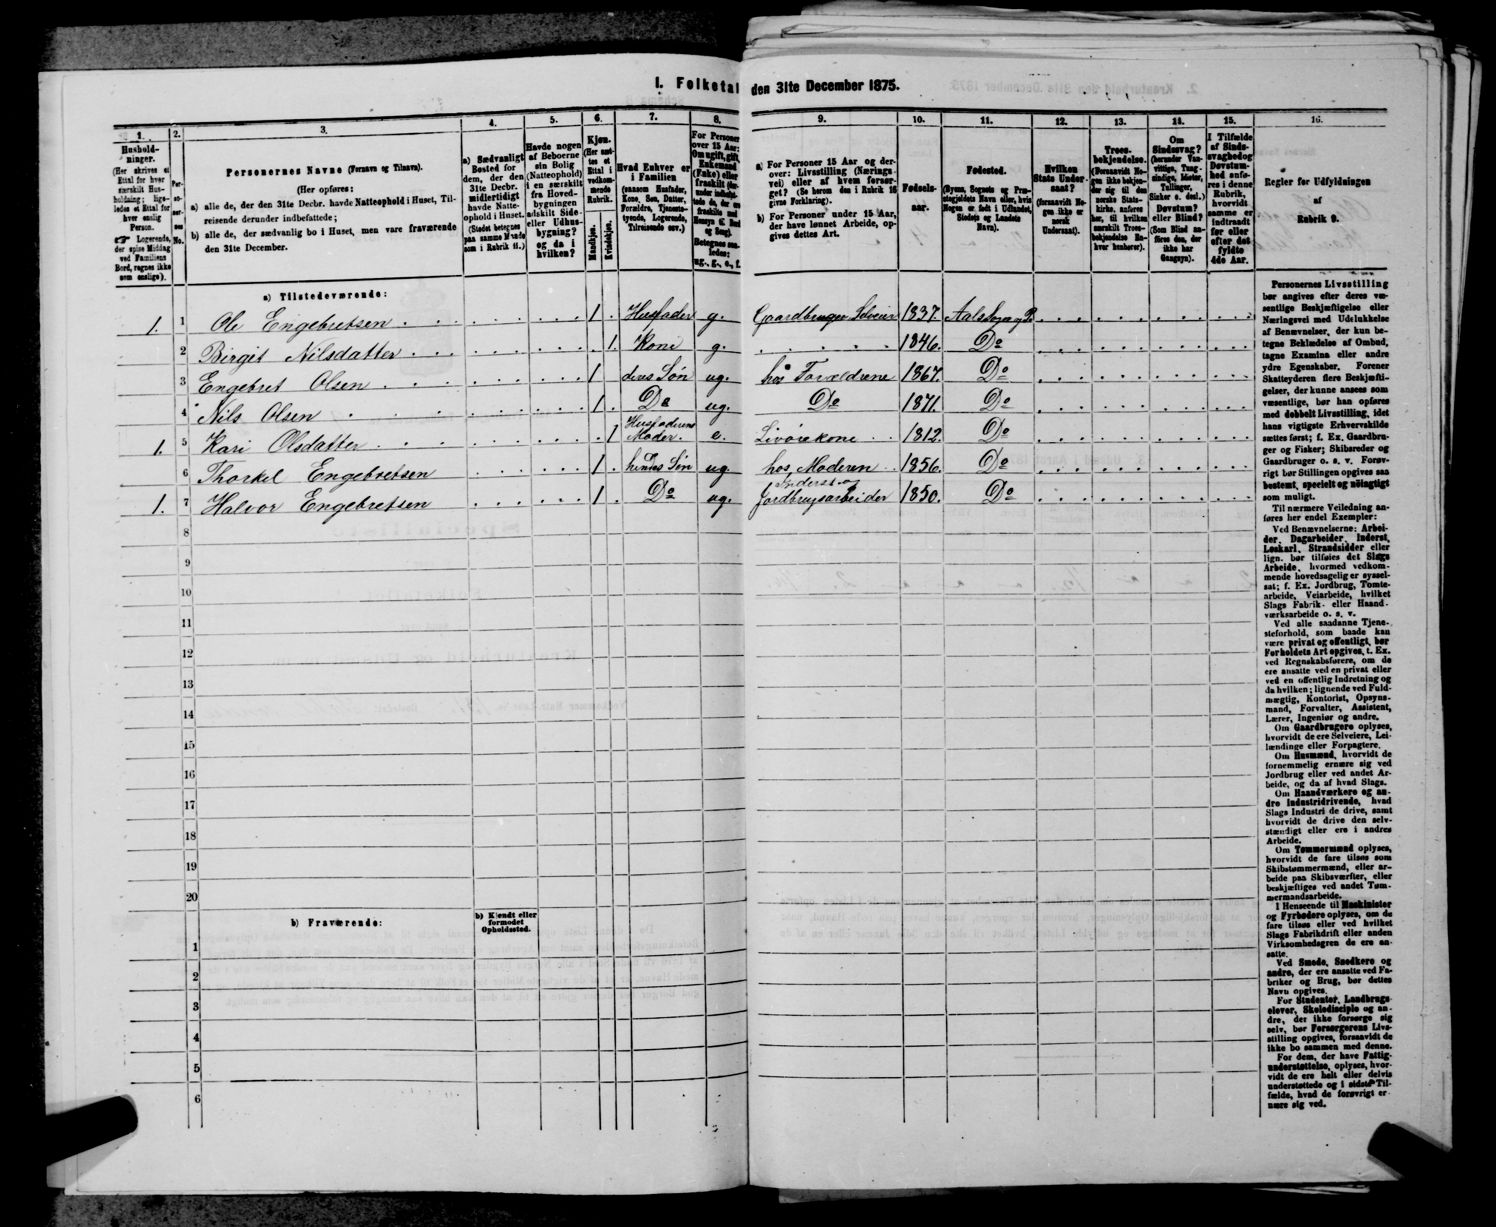 I. Folketal den 31te December 1875.
1. 2. 3. 4. 5. 6. 7. 8. 9. 10. 11. 12. 13. 14. 15. 16.
Hushold-
ninger.
(Her skrives et
Ettal for hver
særskilt Hus-
holdning; lige-
ledes et Ettal for
hver enslig
Person.
☞ Logerende,
der spise Middag
ved Familiens
Bord, regnes ikke
som enslige).
Per-
so-
ner-
nes
No.
Personernes Navne (Fornavn og Tilnavn).
(Her opføres:
a) alle de, der den 31te Decbr. havde Natteophold i Huset, Til-
reisende derunder indbefattede;
b) alle de, der sædvanlig bo i Huset, men vare fraværende
den 31te December.
a) Sædvanligt
Bosted for
dem, der den
31te Decbr.
midlertidigt
havde Natte-
ophold i Huset.
(Stedet betegnes
paa samme Maade
som i Rubrik 11.)
Havde nogen
af Beboerne
sin Bolig
(Natteophold)
i en særskilt
fra Hoved-
bygningen
adskilt Side-
eller Udhus-
bygning?
og da i
hvilken?
Kjøn.
(Her sæt-
tes et
Ettal i
vedkom-
mende
Rubrik.
Mandkjøn.
Kvindekjøn.
Hvad Enhver er
i Familien
(saasom Husfader,
Kone, Søn, Datter,
Forældre, Tjeneste-
tyende, Logerende,
Tilreisende osv.)
For Personer
over 15 Aar:
Om ugift, gift,
Enkemand
(Enke) eller
fraskilt
Betegnes saa-
ledes:
ug., g., e., f.
a) For Personer 15 Aar og der-
over: Livsstilling (Nærings-
vei) eller af hvem forsør-
get? (Se herom den i Rubrik 16
givne Forklaring).
b) For Personer under 15 Aar,
der have lønnet Arbeide, op-
gives dettes Art.
Fødsels-
aar.
Fødested.
(Byens, Sognets og Præ-
stegjeldets Navn eller, hvis
Nogen er født i Udlandet,
Stedets og Landets
Navn).
Hvilken
Stats Under-
saat?
(forsaavidt No-
gen ikke er
norsk
Undersaat).
Troes-
bekjendelse.
(Forsaavidt No-
gen ikke bekjen-
der sig til den
norske Stats-
kirke, anføres
her, til hvilken
særskilt Troes-
bekjendelse En-
hver henhører).
Om
Sindssvag?
(herunder Van-
vittige, Tung-
sindige, Idioter,
Tullinger,
Sinker o. desl.)
Døvstum?
eller Blind?
(Som Blind an-
føres den, der
ikke har
Gangsyn).
I Tilfælde
af Sinds-
svaghed og
Døvstum-
hed anfø-
res i denne
Rubrik,
hvorvidt
samme er
indtraadt
før eller
efter det
fyldte
4de Aar.
Regler for Udfyldningen
af
Rubrik 9.
a) Tilstedeværende:
1. 1 Ole Engebretsen 1 Husfader g. Gaardbruger Selveier 1837. Aals
2 Birgit Nilsdatter 1. Kone g. 1846. Do
3 Engebret Olsen 1 deres Søn ug. hos Forældrene 1867. Do
4 Nils Olsen 1. Do ug. Do 1871. Do
1. 5 Kari Olsdatter 1 Husfaderens Moder. e. Livørekone 1812. Do
6 Thorkel Engebretsen 1 hendes Søn ug hos Moderen 1856. Do
1. 7 Halvor Engebretsen 1 Do ug. Inderst og Jordbrugsarbeider 1850. Do
8
9
10
11
12
13
14
15
16
17
18
19
20
b) Fraværende:
b) Kjendt eller
formodet
Opholdssted.
1
2
3
4
5
6
Personernes Livsstilling
bør angives efter deres væ-
sentlige Beskjæftigelse eller
Næringsvei med Udelukkelse
af Benævnelser, der kun be-
tegne Beklædelse af Ombud,
tagne Examina eller andre
ydre Egenskaber. Forener
Skatteyderen flere Beskjæfti-
gelser, der kunne ansees som
væsentlige, bør han opføres
med dobbelt Livsstilling, idet
hans vigtigste Erhvervskilde
sættes først; f. Ex. Gaardbru-
ger og Fisker; Skibsreder og
Gaardbruger o. s. v. Forøv-
rigt bør Stillingen opgives saa
bestemt, specielt og nøiagtigt
som muligt.
Til nærmere Veiledning an-
føres her endel Exempler:
Ved Benævnelserne: Arbei-
der, Dagarbeider, Inderst,
Løskarl, Strandsidder eller
lign. bør tilføies det Slags
Arbeide, hvormed vedkom-
mende hovedsagelig er syssel-
sat; f. Ex. Jordbrug, Tomte-
arbeide, Veiarbeide, hvilket
Slags Fabrik- eller Haand-
værksarbeide o. s. v.
Ved alle saadanne Tjene-
steforhold, som baade kan
være privat og offentligt, bør
Forholdets Art opgives, t. Ex.
ved Regnskabsførere, om de
ere ansatte ved en privat eller
ved en offentlig Indretning og
da hvilken; lignende ved Fuld-
mægtig, Kontorist, Opsyns-
mand, Forvalter, Assistent,
Lærer, Ingeniør og andre.
Om Gaardbrugere oplyses,
hvorvidt de ere Selveiere, Lei-
lændinge eller Forpagtere.
Om Husmænd, hvorvidt de
fornemmelig ernære sig ved
Jordbrug eller ved andet Ar-
beide, og da af hvad Slags.
Om Haandværkere og an-
dre Industridrivende, hvad
Slags Industri de drive, samt
hvorvidt de drive den selv-
stændigt eller ere i andres
Arbeide.
Om Tømmermænd oplyses,
hvorvidt de fare tilsøs som
Skibstømmermænd, eller ar-
beide paa Skibsværfter, eller
beskjæftiges ved andet Tøm-
mermandsarbeide.
I Henseende til Maskinister
og Fyrbødere oplyses, om de
fare tilsøs eller ved hvilket
Slags Fabrikdrift eller anden
Virksomhedsgren de ere an-
satte.
Ved Smede, Snedkere og
andre, der ere ansatte ved Fa-
briker og Brug, bør dettes
Navn opgives.
For Studenter, Landbrugs-
elever, Skoledisciple og an-
dre, der ikke forsørge sig
selv, bør Forsørgerens Livs-
stilling opgives, forsaavidt de
ikke bo sammen med denne.
For dem, der have Fattig-
understøttelse, oplyses, hvor-
vidt de ere helt eller delvis
understøttede og i sidste Til-
fælde, hvad de forøvrigt er-
nære sig ved.